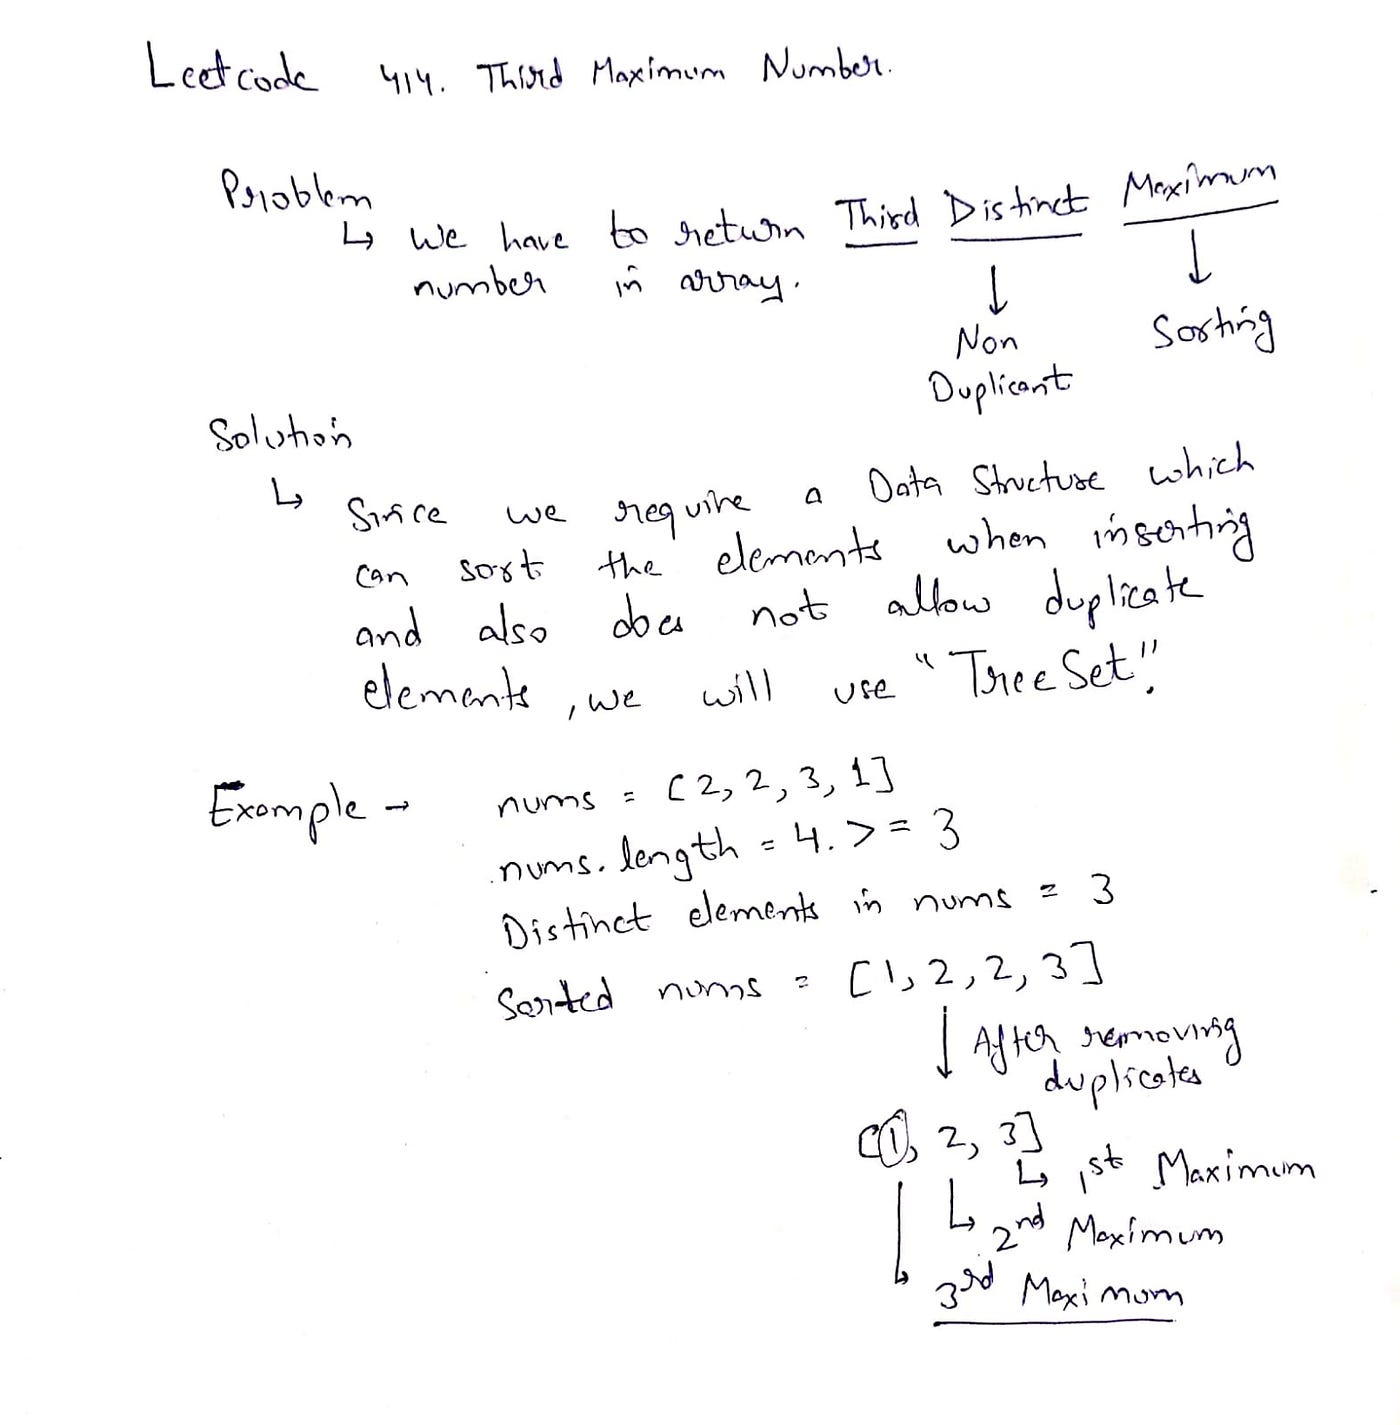 Leetcode 414. Third Maximum Number.
Problem
↳ We have to return Third Distinct Maximum
number in array.
↓ ↓
Non Sorting
Duplicant
Solution
↳ Since we require a Data Structure which
can sort the elements when inserting
and also does not allow duplicate
elements, we will use "TreeSet".
Example → nums = [2, 2, 3, 1]
nums.length = 4. >= 3
Distinct elements in nums = 3
Sorted nums = [1, 2, 2, 3]
↓ After removing
duplicates
[1, 2, 3]
↳ 1st Maximum
↳ 2nd Maximum
↳ 3rd Maximum